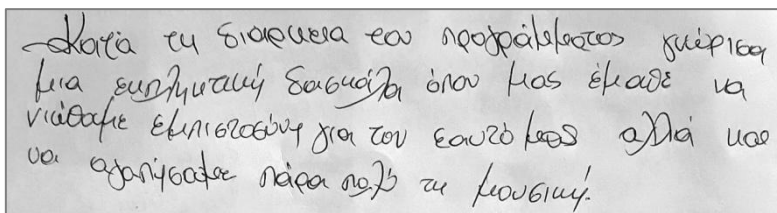 Κατά τη διάρκεια του προγράμματος γνώρισα
μια εκπληκτική δασκάλα όπου μας έμαθε να
νιώθαμε εμπιστοσύνη για τον εαυτό μας αλλά και
να αγαπήσαμε πάρα πολύ τη μουσική.